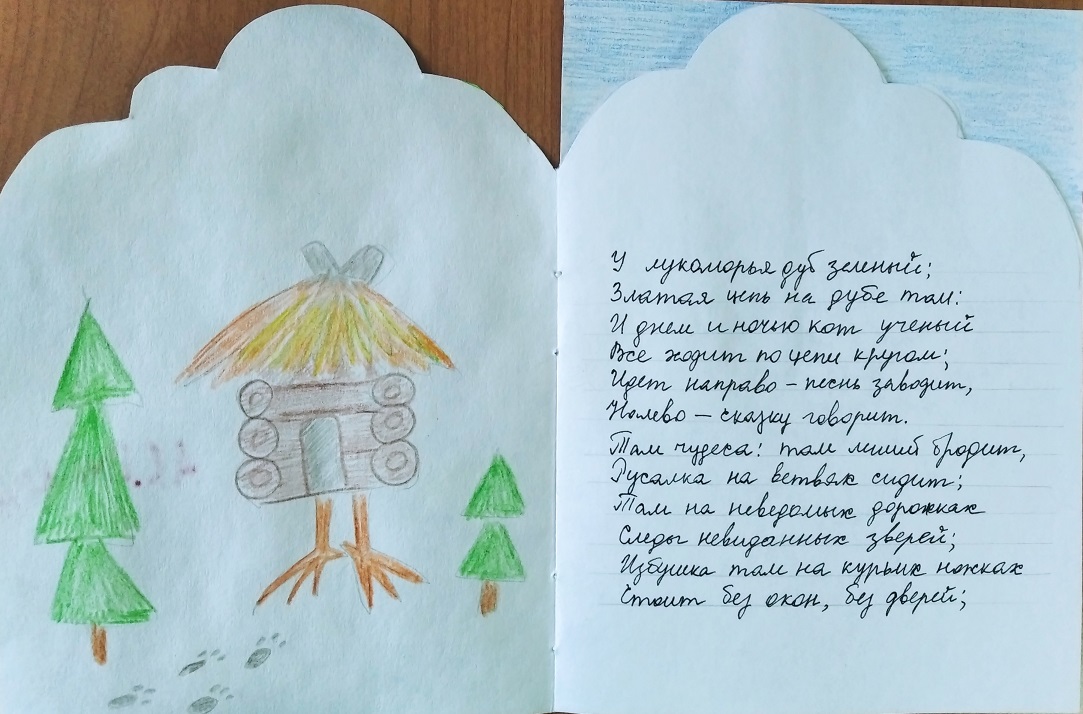 У лукоморья дуб зеленый;
Златая цепь на дубе том:
И днем и ночью кот ученый
Все ходит по цепи кругом;
Идет направо – песнь заводит,
Налево – сказку говорит.
Там чудеса: там леший бродит,
Русалка на ветвях сидит;
Там на неведомых дорожках
Следы невиданных зверей;
Избушка там на курьих ножках
Стоит без окон, без дверей;